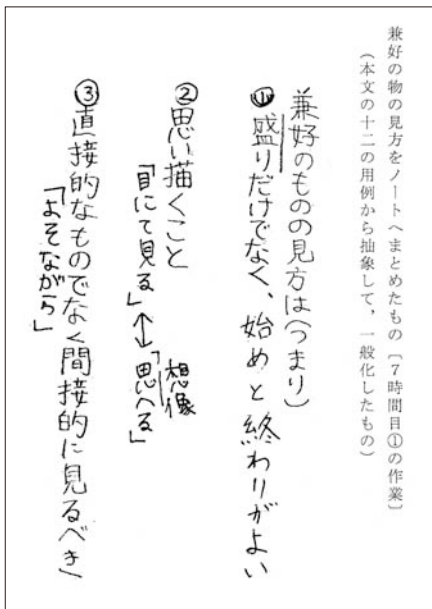 兼好の物の見方をノートへまとめたもの〔7時間目①の作業〕
(本文の十二の用例から抽象して，一般化したもの)
兼好のものの見方は(つまり)
①盛りだけでなく、始めと終わりがよい
②思い描くこと
「目にて見る」↔「思へる」
想像
③直接的なものでなく間接的に見るべき
「よそながら」